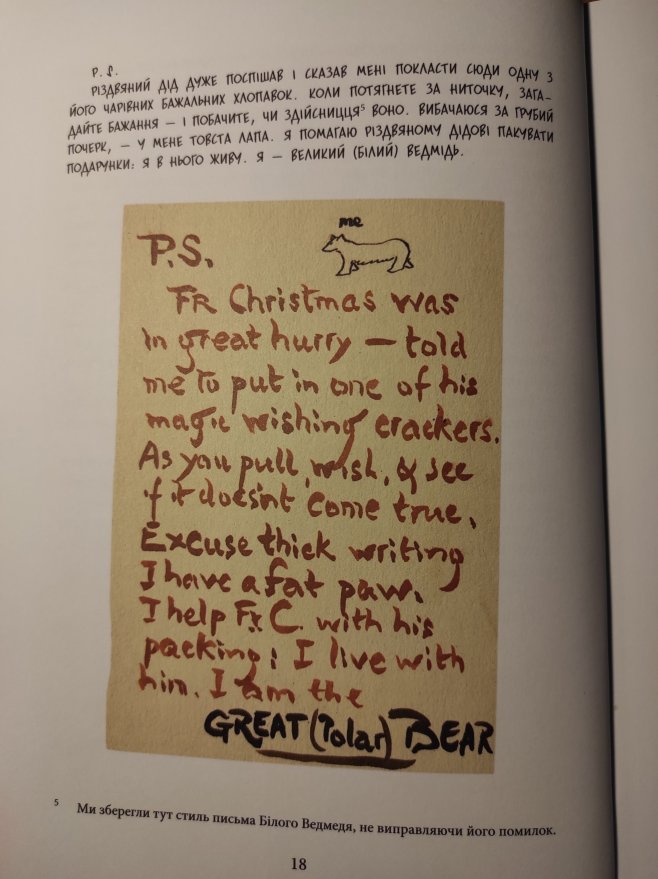 P. S.
РІЗДВЯНИЙ ДІД ДУЖЕ ПОСПІШАВ І СКАЗАВ МЕНІ ПОКЛАСТИ СЮДИ ОДНУ З
ЙОГО ЧАРІВНИХ БАЖАЛЬНИХ ХЛОПАВОК. КОЛИ ПОТЯГНЕТЕ ЗА НИТОЧКУ, ЗАГА–
ДАЙТЕ БАЖАННЯ – І ПОБАЧИТЕ, ЧИ ЗДІЙСНИЦЦЯ⁵ ВОНО. ВИБАЧАЮСЯ ЗА ГРУБИЙ
ПОЧЕРК, – У МЕНЕ ТОВСТА ЛАПА. Я ПОМАГАЮ РІЗДВЯНОМУ ДІДОВІ ПАКУВАТИ
ПОДАРУНКИ: Я В НЬОГО ЖИВУ. Я – ВЕЛИКИЙ (БІЛИЙ) ВЕДМІДЬ.
me
P.S.
FR Christmas was
in great hurry — told
me to put in one of his
magic wishing crackers.
As you pull, wish, & see
if it doesn't come true.
Excuse thick writing
I have a fat paw.
I help Fr C. with his
packing: I live with
him. I am the
GREAT (Polar) BEAR
⁵ Ми зберегли тут стиль письма Білого Ведмедя, не виправляючи його помилок.
18